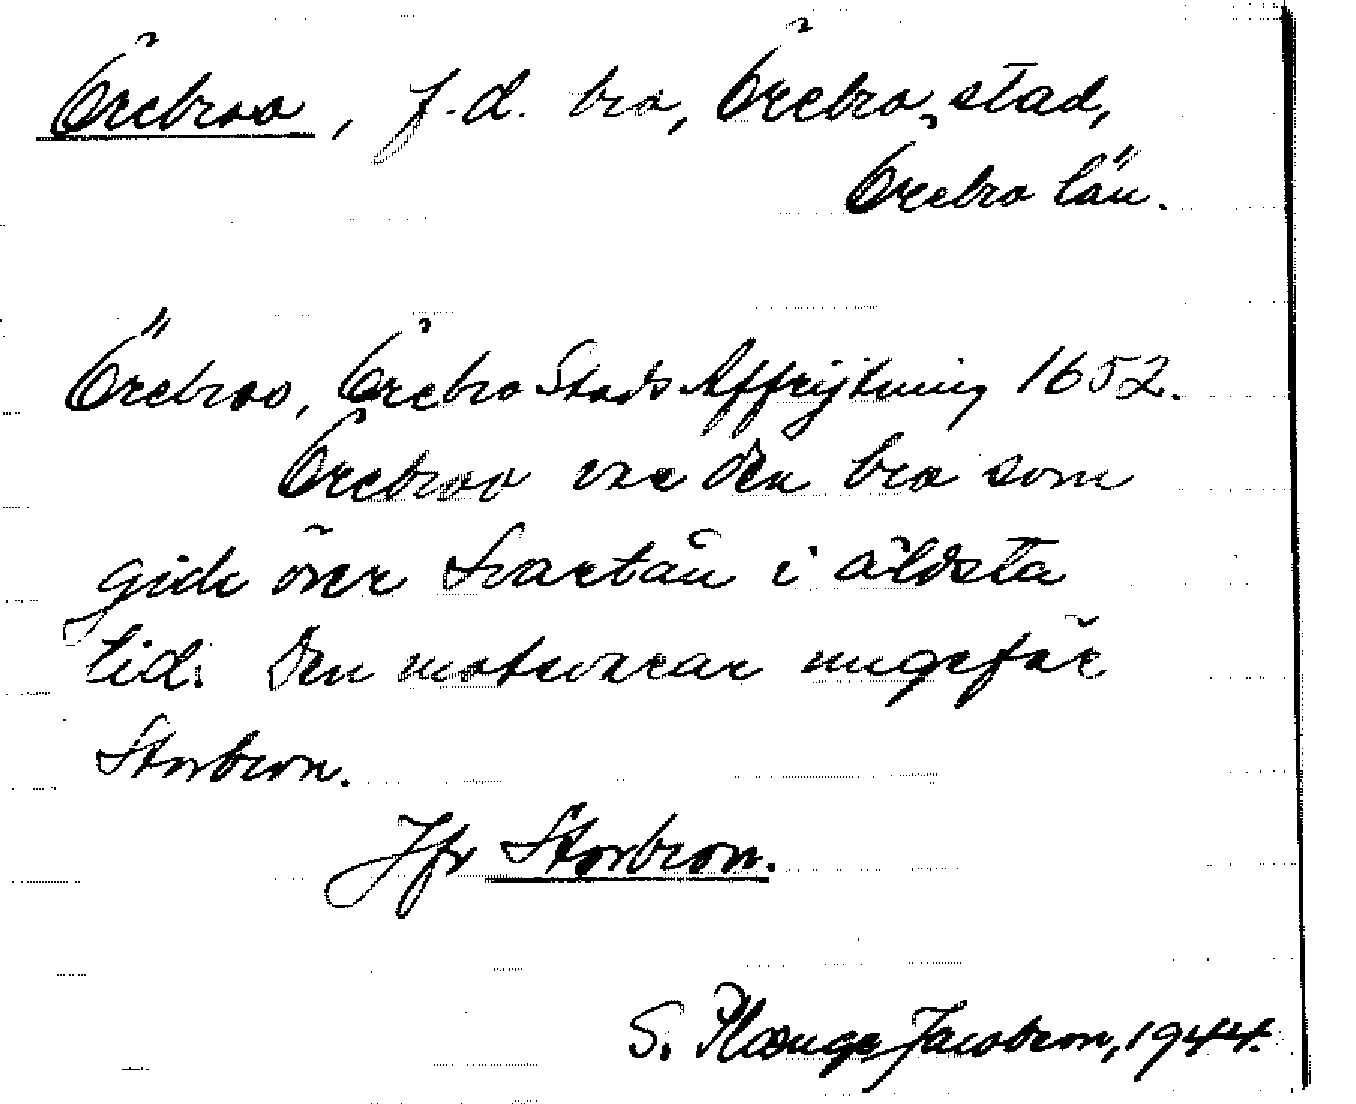 Örebroo, f.d. bro, Örebro stad,
Örebro län.
Örebroo, Örebro Stads Affrijtning 1652.
Örebroo var den bro som
gick över Svartån i äldsta
tid. Den motsvarar ungefär
Storbron.
Jfr Storbron.
S. Jacobson, 1944.